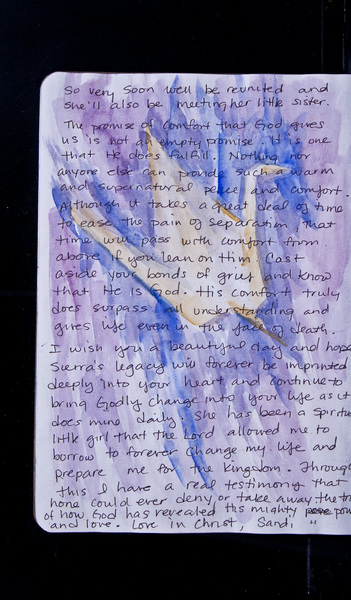 So very soon we'll be reunited and
she'll also be meeting her little sister.
The promise of comfort that God gives
us is not an empty promise it is one
that He does fulfill. Nothing nor
anyone else can provide such a warm
and supernatural peace and comfort.
Although it takes a great deal of time
to ease the pain of separation, that
time will pass with comfort from
above if you lean on Him. Cast
aside your bonds of grief and know
that He is God. His comfort truly
does surpass all understanding and
gives life even in the face of death.
I wish you a beautiful day and hope
Sierra's legacy will forever be imprinted
deeply into your heart and continue to
bring Godly change into your life as it
does mine daily. She has been a Spiritu
little girl that the Lord allowed me to
borrow to forever change my life and
prepare me for the Kingdom. Through
this I have a real testimony that
none could ever deny or take away the tr
of how God has revealed His mighty pow
and love. Love in Christ, Sandi